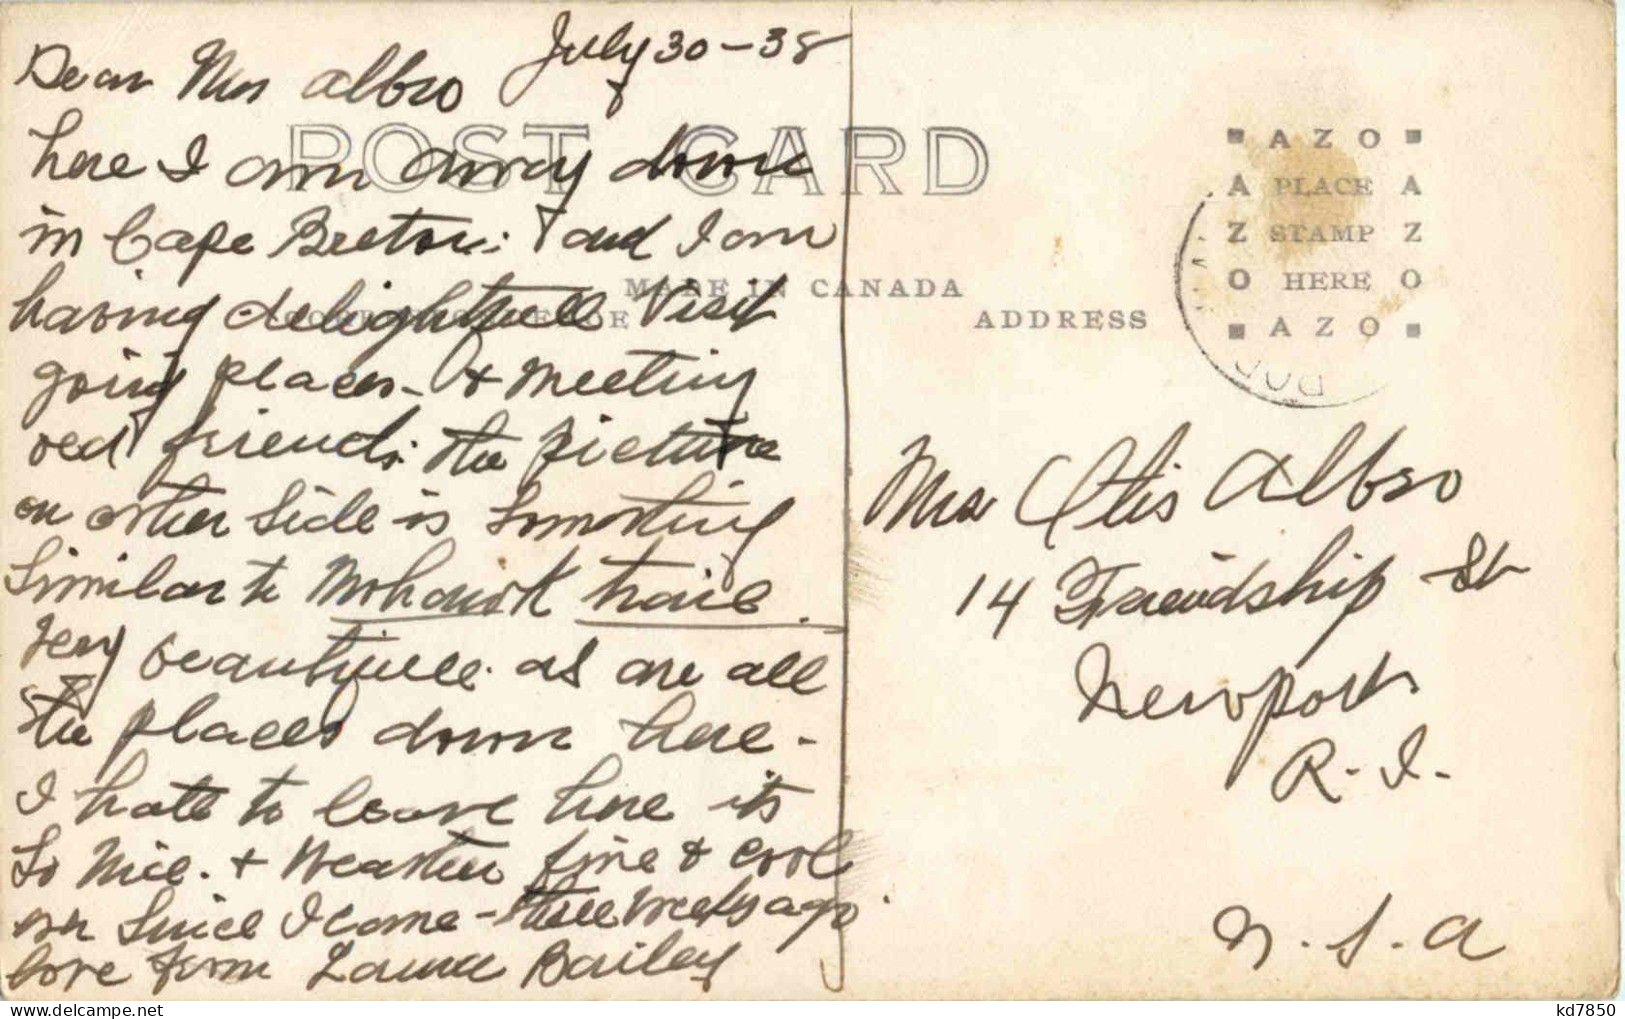 July 30-38
Dear Mrs Albro
here I am away down
in Cape Breton: & and I am
having delightfull Visit
going places - & meeting
old friends. the picture
on other side is something
similar to Mohawk trail.
Very beautifull as are all
the places down here -
I hate to leave here its
So Nice. & Weather fine & cool
ever Since I came - three weeks ago
love from Laura Bailey
POST CARD
MADE IN CANADA
CORRESPONDENCE
ADDRESS
AZO
PLACE
STAMP
HERE
AZO
Mrs Otis Albro
14 Friendship St
Newport
R. I.
U. S. A
kd7850